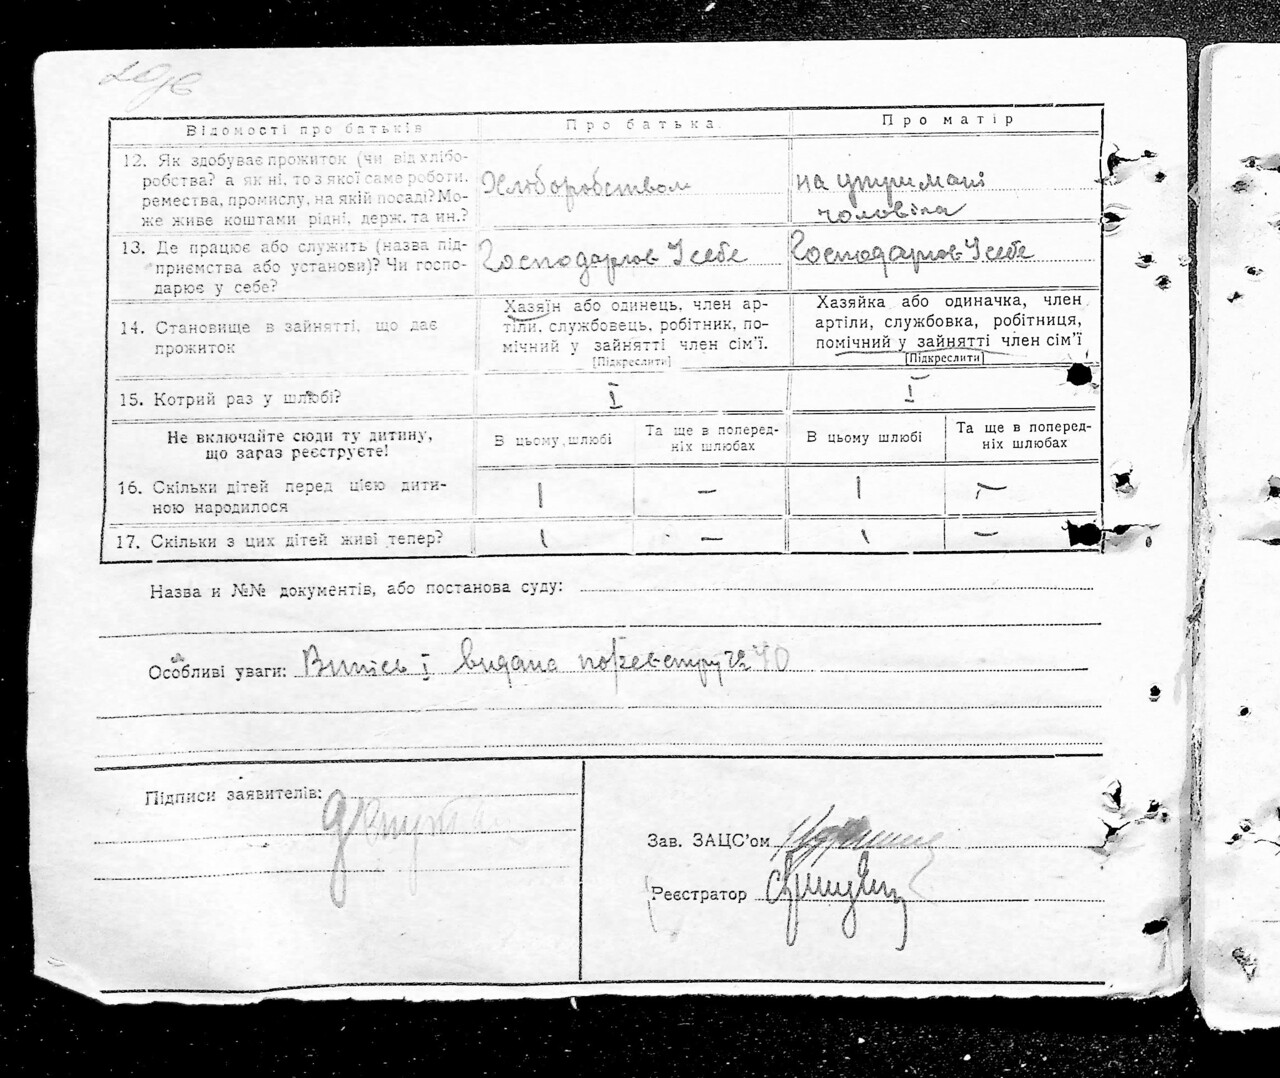 Відомості про батьків
Про батька
Про матір
12. Як здобуває прожиток (чи від хлібо-
робства? а як ні, то з якої саме роботи,
ремества, промислу, на якій посаді? Мо-
же живе коштами рідні, держ. та ин.?
Хлиборобством
на утримані
чоловіка
13. Де працює або служить (назва під-
приємства або установи)? Чи госпо-
дарює у себе?
Господарюв У себе
Господарюв У себе
14. Становище в зайнятті, що дає
прожиток
Хазяїн або одинець, член ар-
тіли, службовець, робітник, по-
мічний у зайнятті член сім'ї.
[Підкреслити]
Хазяйка або одиначка, член
артіли, службовка, робітниця,
помічний у зайнятті член сім'ї
[Підкреслити]
15. Котрий раз у шлюбі?
I
I
Не включайте сюди ту дитину,
що зараз реєструєте!
В цьому шлюбі
Та ще в поперед-
ніх шлюбах
В цьому шлюбі
Та ще в поперед-
ніх шлюбах
16. Скільки дітей перед цією дити-
ною народилося
1
—
1
—
17. Скільки з цих дітей живі тепер?
1
—
1
—
Назва и №№ документів, або постанова суду:
Особливі уваги: Випісь I видана по
Підписи заявителів:
Зав. ЗАЦС'ом
Реєстратор